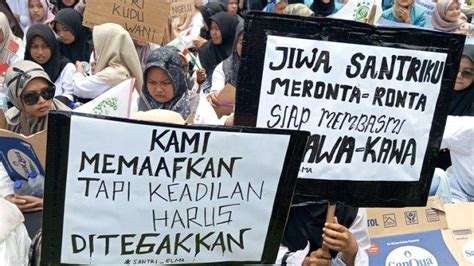 KUDU
WANI
JIWA SANTRIKU
MERONTA-RONTA
SIAP MEMBASMI
AWA-KAWA
ELMA
KAMI
MEMAAFKAN
TAPI KEADILAN
HARUS
DITEGAKKAN
# SANTRI_ELMA